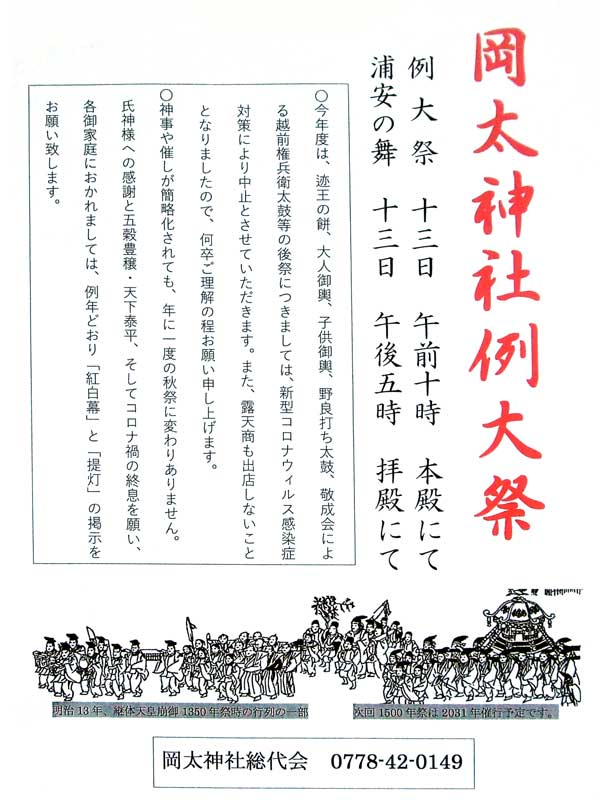 岡太神社例大祭
例大祭　十三日　午前十時　本殿にて
浦安の舞　十三日　午後五時　拝殿にて
〇今年度は、迹王の餅、大人御輿、子供御輿、野良打ち太鼓、敬成会によ
る越前権兵衛太鼓等の後祭につきましては、新型コロナウィルス感染症
対策により中止とさせていただきます。また、露天商も出店しないこと
となりましたので、何卒ご理解の程お願い申し上げます。
〇神事や催しが簡略化されても、年に一度の秋祭に変わりありません。
氏神様への感謝と五穀豊穣・天下泰平、そしてコロナ禍の終息を願い、
各御家庭におかれましては、例年どおり「紅白幕」と「提灯」の掲示を
お願い致します。
明治13年、継体天皇崩御1350年祭時の行列の一部
次回1500年祭は2031年催行予定です。
岡太神社総代会　0778-42-0149